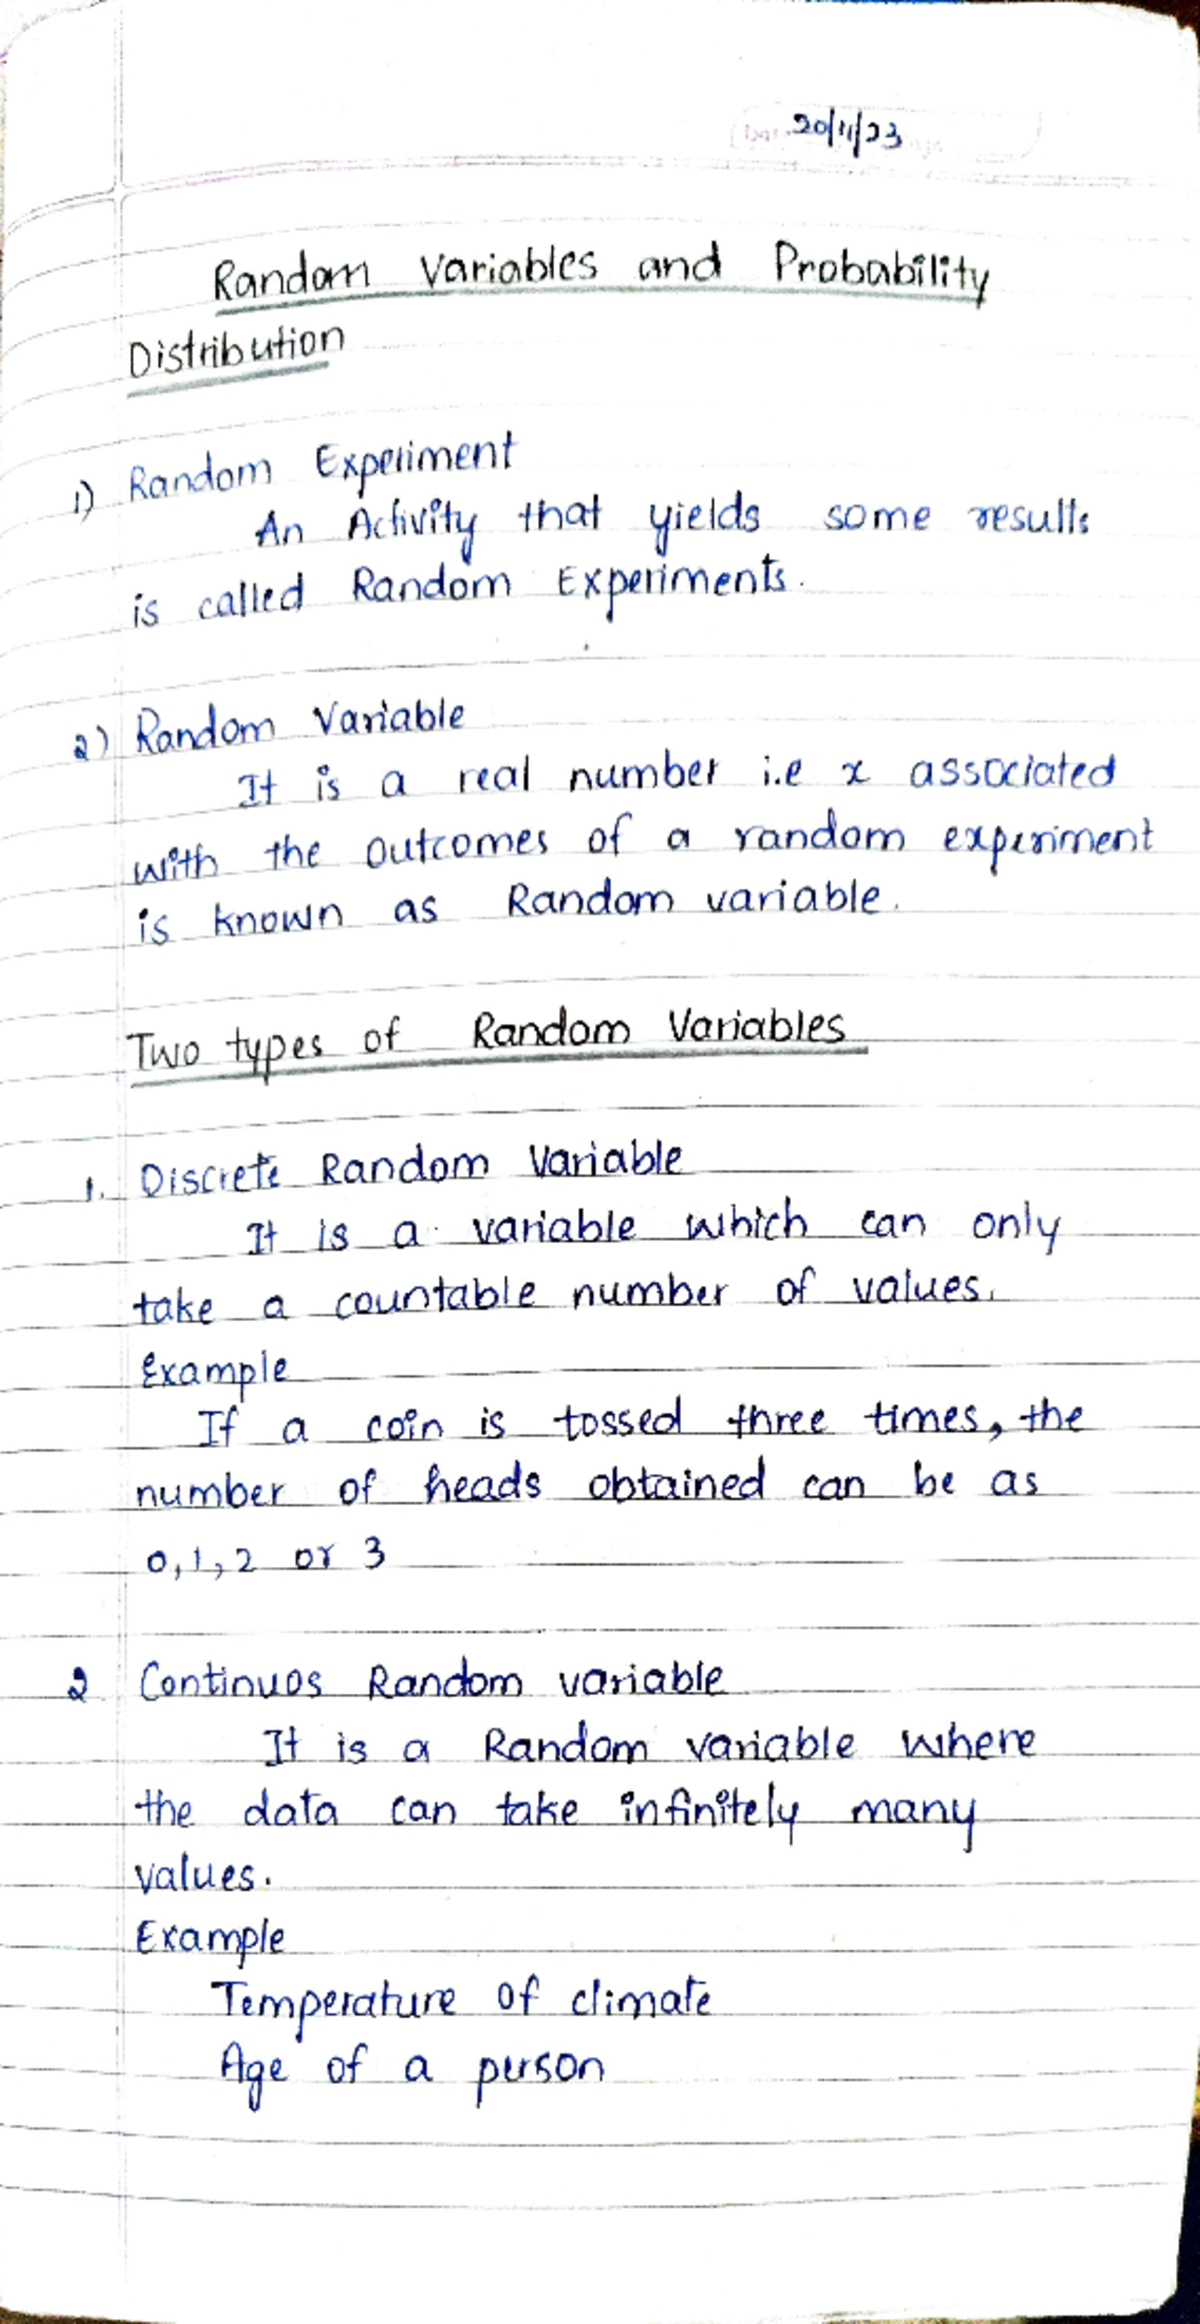 20/11/23
Random Variables and Probability
Distribution
1) Random Experiment
An Activity that yields some results
is called Random Experiments.
2) Random Variable
It is a real number i.e x associated
with the outcomes of a random experiment
is known as Random variable.
Two types of Random Variables
1. Discrete Random Variable
It is a variable which can only
take a countable number of values.
Example
If a coin is tossed three times, the
number of heads obtained can be as
0,1,2 or 3
2 Continuos Random variable
It is a Random variable where
the data can take infinitely many
values.
Example
Temperature of climate
Age of a person